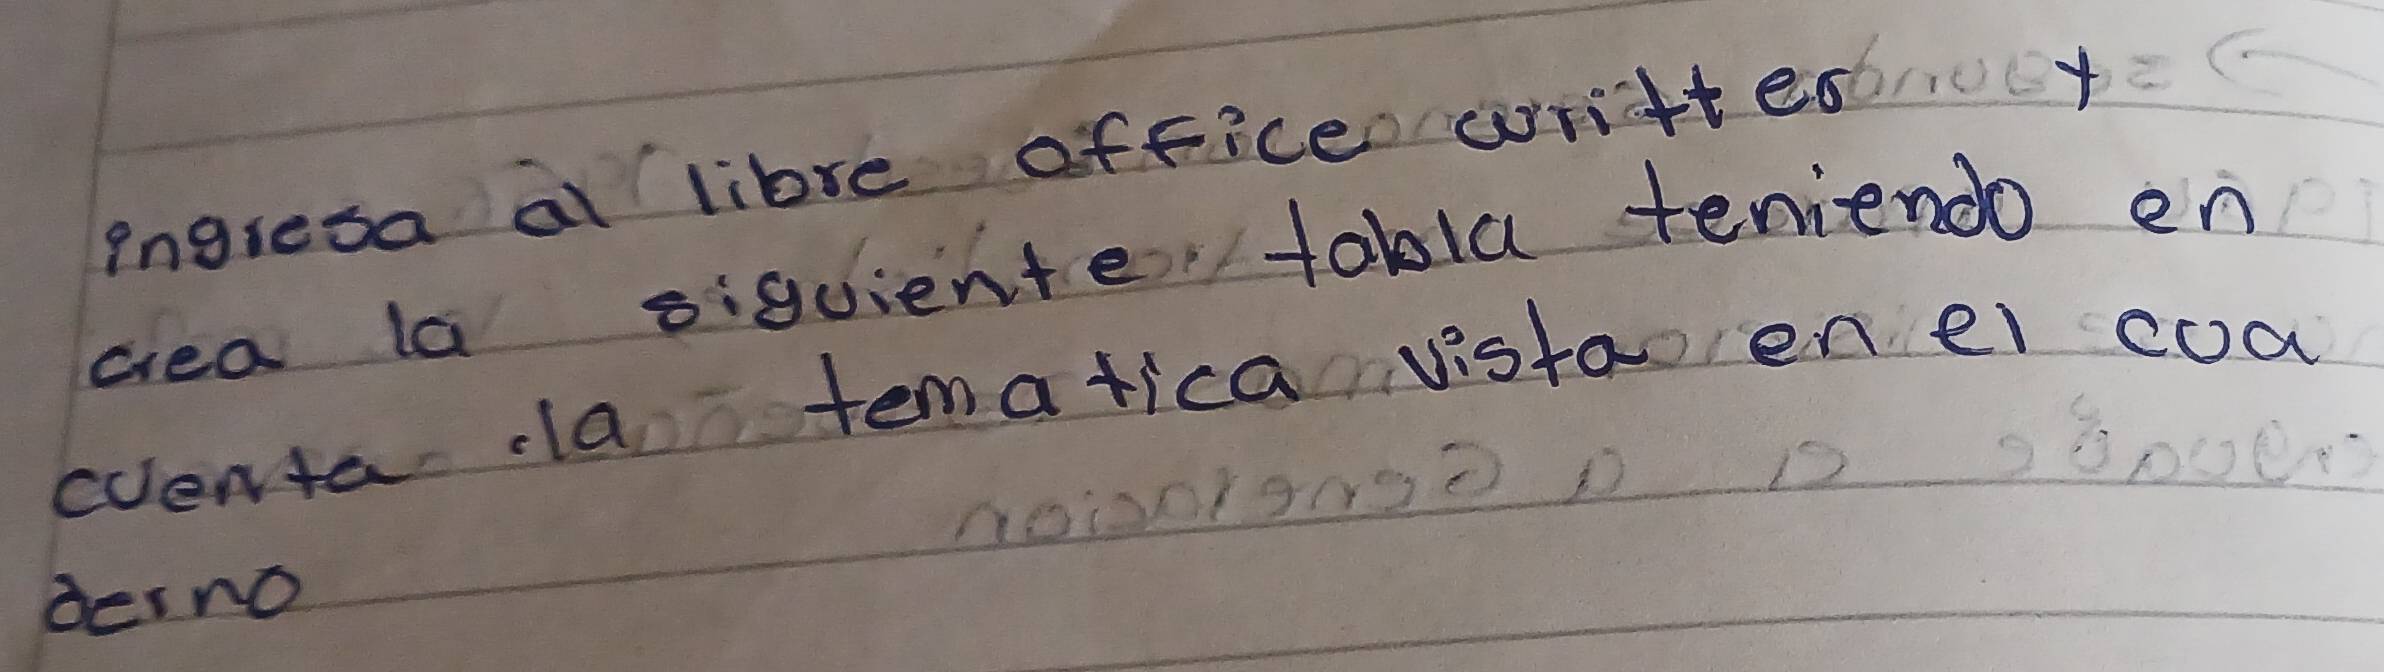 ingresa al libre office writter y
crea la siguiente tabla teniendo en
cuenta la tematica vista en el cua
derno